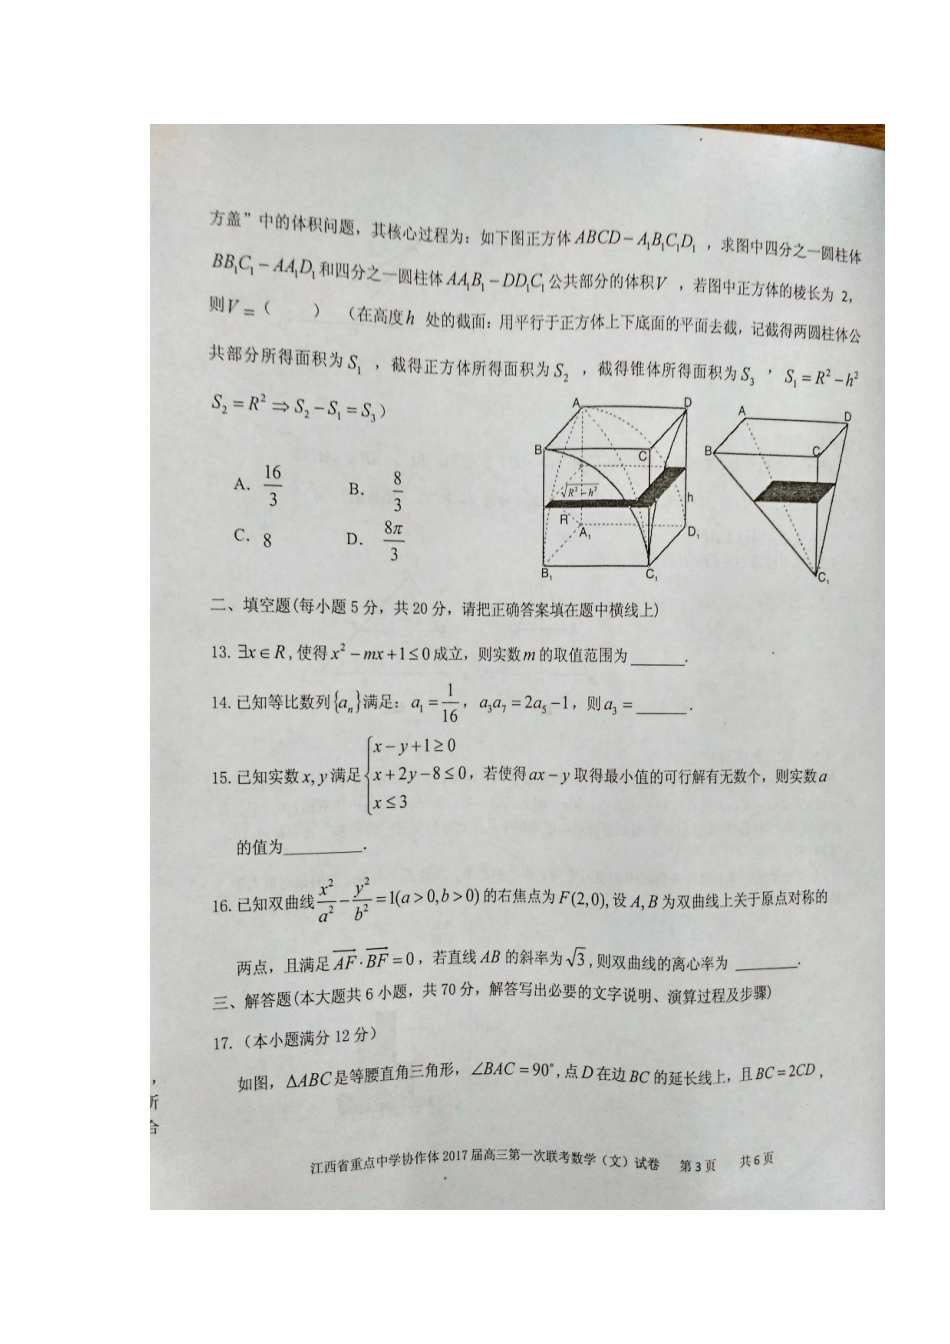 方盖”中的体积问题，其核心过程为：如下图正方体 ABCD－A₁B₁C₁D₁ ，求图中四分之一圆柱体
BB₁C₁－AA₁D₁ 和四分之一圆柱体 AA₁B₁－DD₁C₁ 公共部分的体积V ，若图中正方体的棱长为 2，
则V＝（ ） （在高度h 处的截面：用平行于正方体上下底面的平面去截，记截得两圆柱体公
共部分所得面积为 S₁ ，截得正方体所得面积为 S₂ ，截得锥体所得面积为 S₃ ，S₁＝R²－h²
S₂＝R² ⇒ S₂－S₁＝S₃）
A. 16/3 B. 8/3
C. 8 D. 8π/3
A D
B C
√R²－h²
h
R
A₁ D₁
B₁ C₁
A D
B C
C₁
二、填空题(每小题 5 分，共 20 分，请把正确答案填在题中横线上)
13. ∃x∈R, 使得 x²－mx＋1≤0 成立，则实数 m 的取值范围为______.
14. 已知等比数列{aₙ}满足：a₁＝1/16，a₃a₇＝2a₅－1，则 a₃＝______.
15. 已知实数 x, y 满足 { x－y＋1≥0
x＋2y－8≤0，若使得 ax－y 取得最小值的可行解有无数个，则实数 a
x≤3
的值为________.
16. 已知双曲线 x²/a²－y²/b²＝1(a＞0,b＞0) 的右焦点为 F(2,0), 设 A,B 为双曲线上关于原点对称的
两点，且满足 AF·BF＝0，若直线 AB 的斜率为√3, 则双曲线的离心率为 ______.
三、解答题(本大题共 6 小题，共 70 分，解答写出必要的文字说明、演算过程及步骤)
17.（本小题满分 12 分）
如图，△ABC 是等腰直角三角形，∠BAC＝90°, 点 D 在边 BC 的延长线上，且 BC＝2CD，
，
所
合
江西省重点中学协作体 2017 届高三第一次联考数学（文）试卷 第 3 页 共 6 页